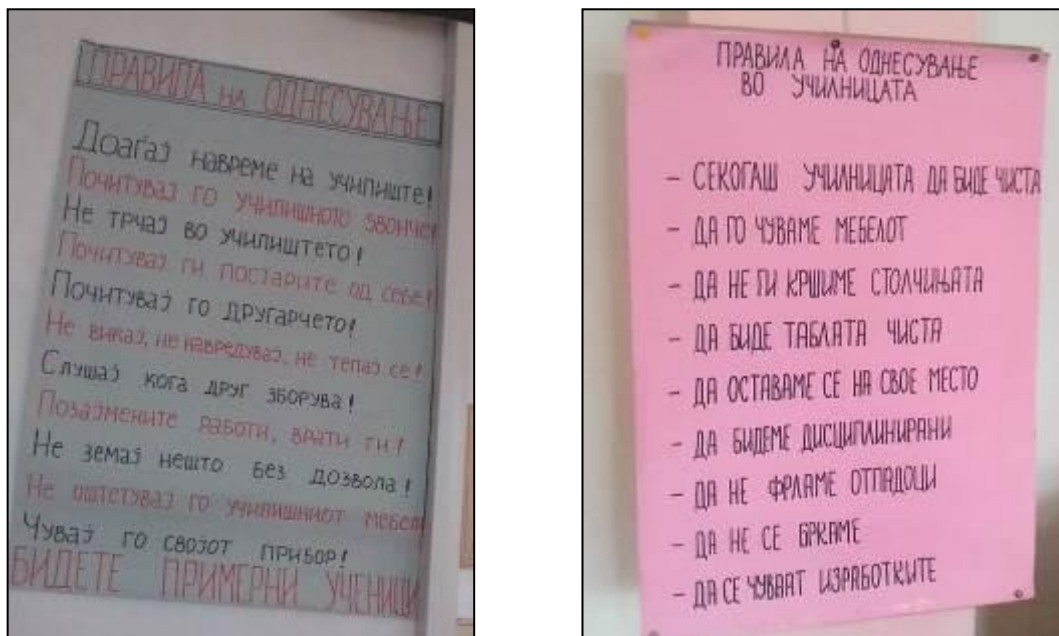 ПРАВИЛА НА ОДНЕСУВАЊЕ
Доаѓај навреме на училиште!
Почитувај го училишното звонче!
Не трчај во училиштето!
Почитувај ги постарите од себе!
Почитувај го другарчето!
Не викај, не навредувај, не тепај се!
Слушај кога друг зборува!
Позајмените работи, врати ги!
Не земај нешто без дозвола!
Не оштетувај го училишниот мебел
Чувај го својот прибор!
БИДЕТЕ ПРИМЕРНИ УЧЕНИЦИ
ПРАВИЛА НА ОДНЕСУВАЊЕ
ВО УЧИЛНИЦАТА
- СЕКОГАШ УЧИЛНИЦАТА ДА БИДЕ ЧИСТА
- ДА ГО ЧУВАМЕ МЕБЕЛОТ
- ДА НЕ ГИ КРШИМЕ СТОЛЧИЊАТА
- ДА БИДЕ ТАБЛАТА ЧИСТА
- ДА ОСТАВАМЕ СЕ НА СВОЕ МЕСТО
- ДА БИДЕМЕ ДИСЦИПЛИНИРАНИ
- ДА НЕ ФРЛАМЕ ОТПАДОЦИ
- ДА НЕ СЕ БРКАМЕ
- ДА СЕ ЧУВААТ ИЗРАБОТКИТЕ